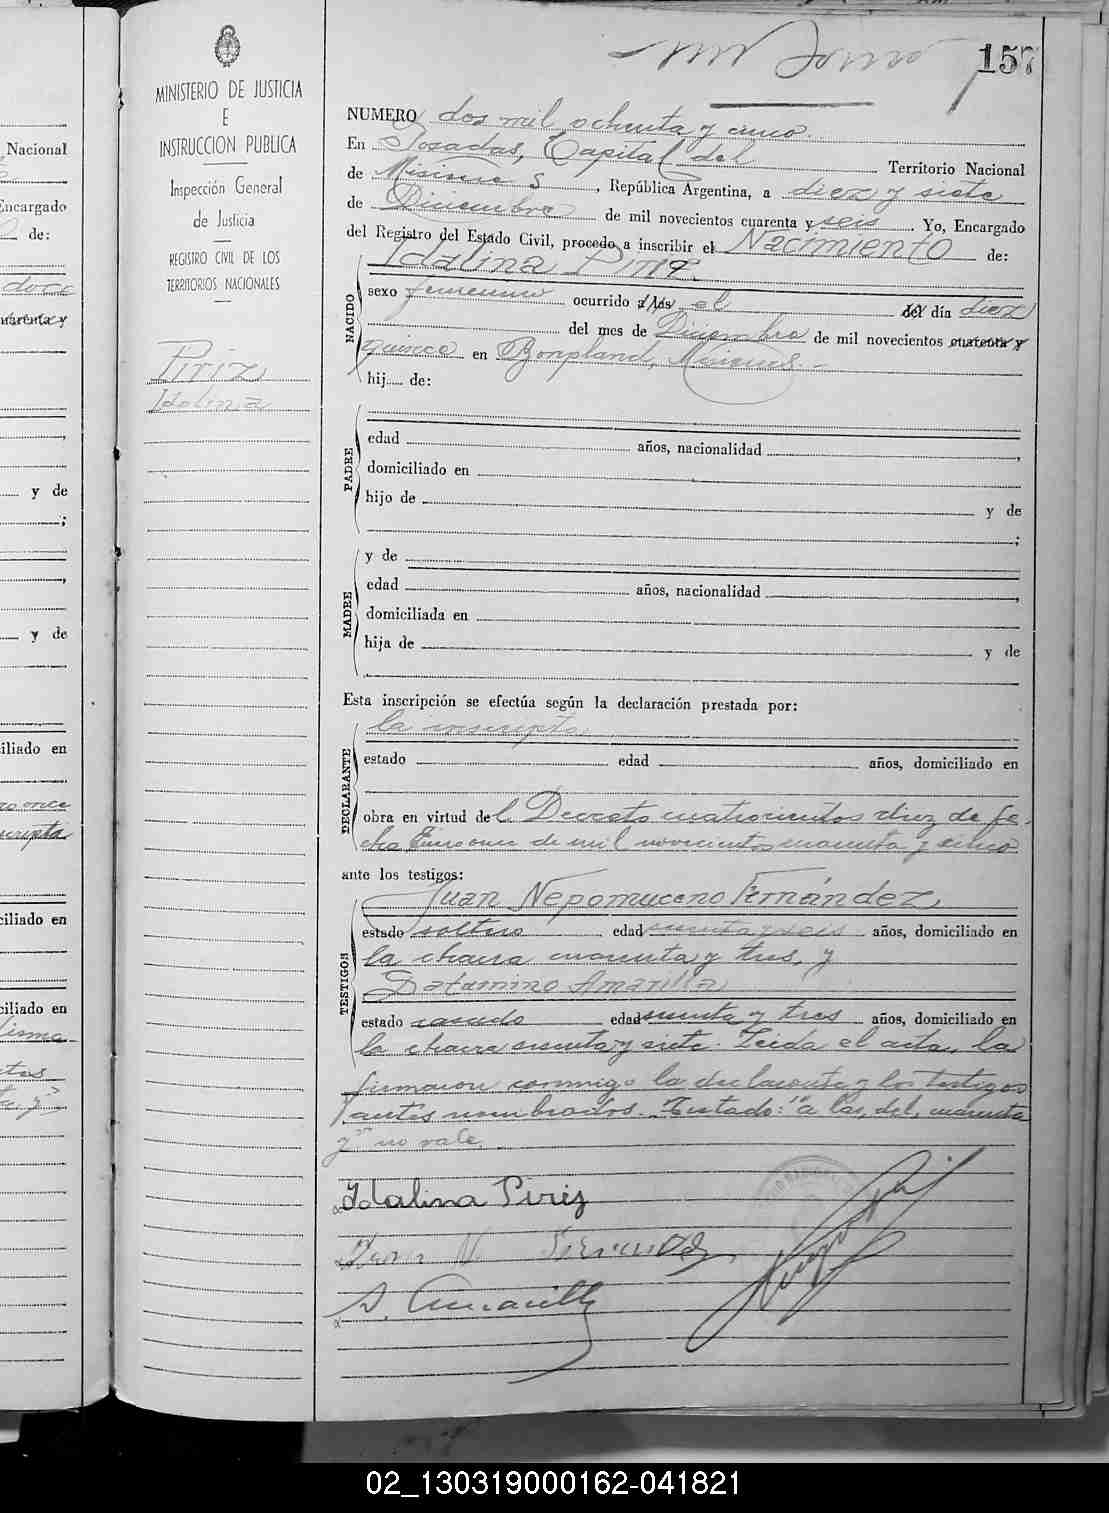 Nacional
Encargado
de:
doce
cuarenta y
y de
;
,
y de
iliado en
once
cripta
ciliado en
ciliado en
firma
MINISTERIO DE JUSTICIA
E
INSTRUCCION PUBLICA
Inspección General
de Justicia
REGISTRO CIVIL DE LOS
TERRITORIOS NACIONALES
Piriz
Idalina
157
NUMERO dos mil ochenta y cinco.
En Posadas, Capital del Territorio Nacional
de Misiones, República Argentina, a diez y siete
de Diciembre de mil novecientos cuarenta y seis. Yo, Encargado
del Registro del Estado Civil, procedo a inscribir el Nacimiento de:
Idalina Piriz
NACIDO
sexo femenino ocurrido a las el del día diez
del mes de Diciembre de mil novecientos cuarenta y
quince en Bonpland, Misiones.-
hij de:
PADRE
edad años, nacionalidad ,
domiciliado en
hijo de y de
;
MADRE
y de
edad años, nacionalidad ,
domiciliada en
hija de y de
Esta inscripción se efectúa según la declaración prestada por:
la inscripta
DECLARANTE
estado edad años, domiciliado en
obra en virtud del Decreto cuatrocientos diez de fe-
cha Enero once de mil novecientos cuarenta y cinco
ante los testigos:
Juan Nepomuceno Fernández
TESTIGOS
estado soltero edad años, domiciliado en
la chacra cuarenta y tres, y
Amarilla
estado casado edad y tres años, domiciliado en
la chacra y siete. Leida el acta, la
firmaron conmigo la declarante y los testigos
antes nombrados. Testado: "a las, del, cuarenta
y" no vale.
Idalina Piriz
Juan N Fernandez
D. Amarilla
02_130319000162-041821